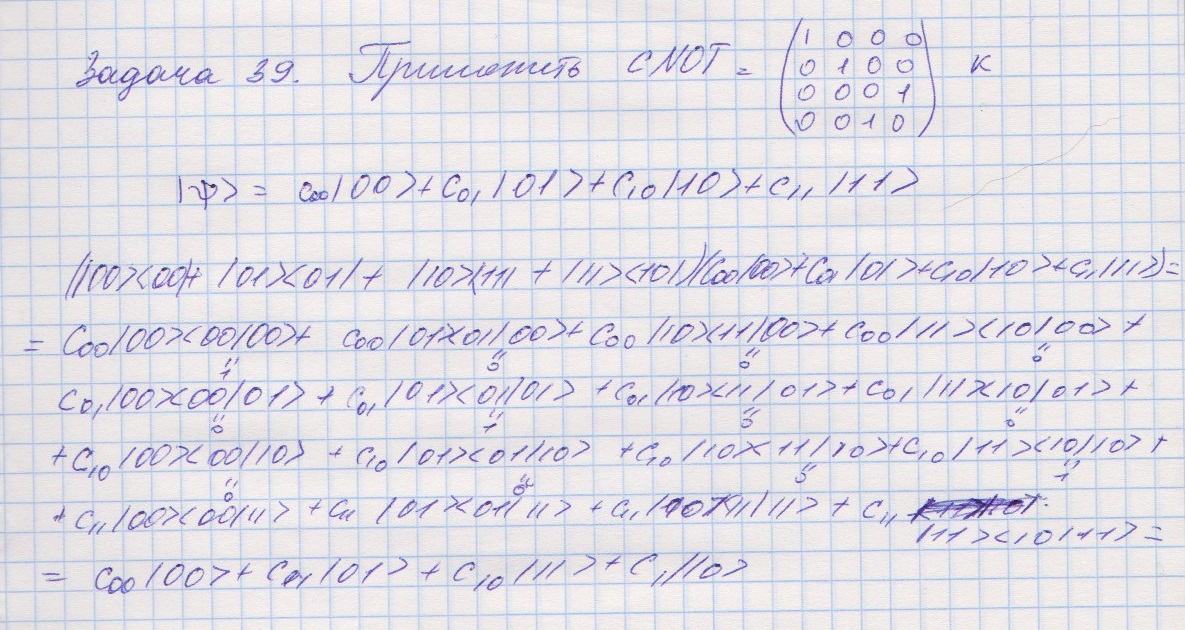 Задача 39. Применить CNOT = (1 0 0 0
0 1 0 0
0 0 0 1
0 0 1 0) к
|ψ> = c₀₀|00>+c₀₁|01>+c₁₀|10>+c₁₁|11>
(|00><00|+ |01><01|+ |10><11| + |11><10|)(c₀₀|00>+c₀₁|01>+c₁₀|10>+c₁₁|11>)=
= c₀₀|00><00|00>+ c₀₀|01><01|00>+c₀₀|10><11|00>+c₀₀|11><10|00>+
" " " "
1 0 0 0
c₀₁|00><00|01>+c₀₁|01><01|01> +c₀₁|10><11|01>+c₀₁|11><10|01>+
" " " "
0 1 0 0
+c₁₀|00><00|10> +c₁₀|01><01|10> +c₁₀|10><11|10>+c₁₀|11><10|10>+
" " " "
0 0 0 1
+c₁₁|00><00|11> +c₁₁|01><01|11> +c₁₁|10><11|11> + c₁₁
|11><10|11>=
= c₀₀|00>+c₀₁|01>+c₁₀|11>+c₁₁|10>